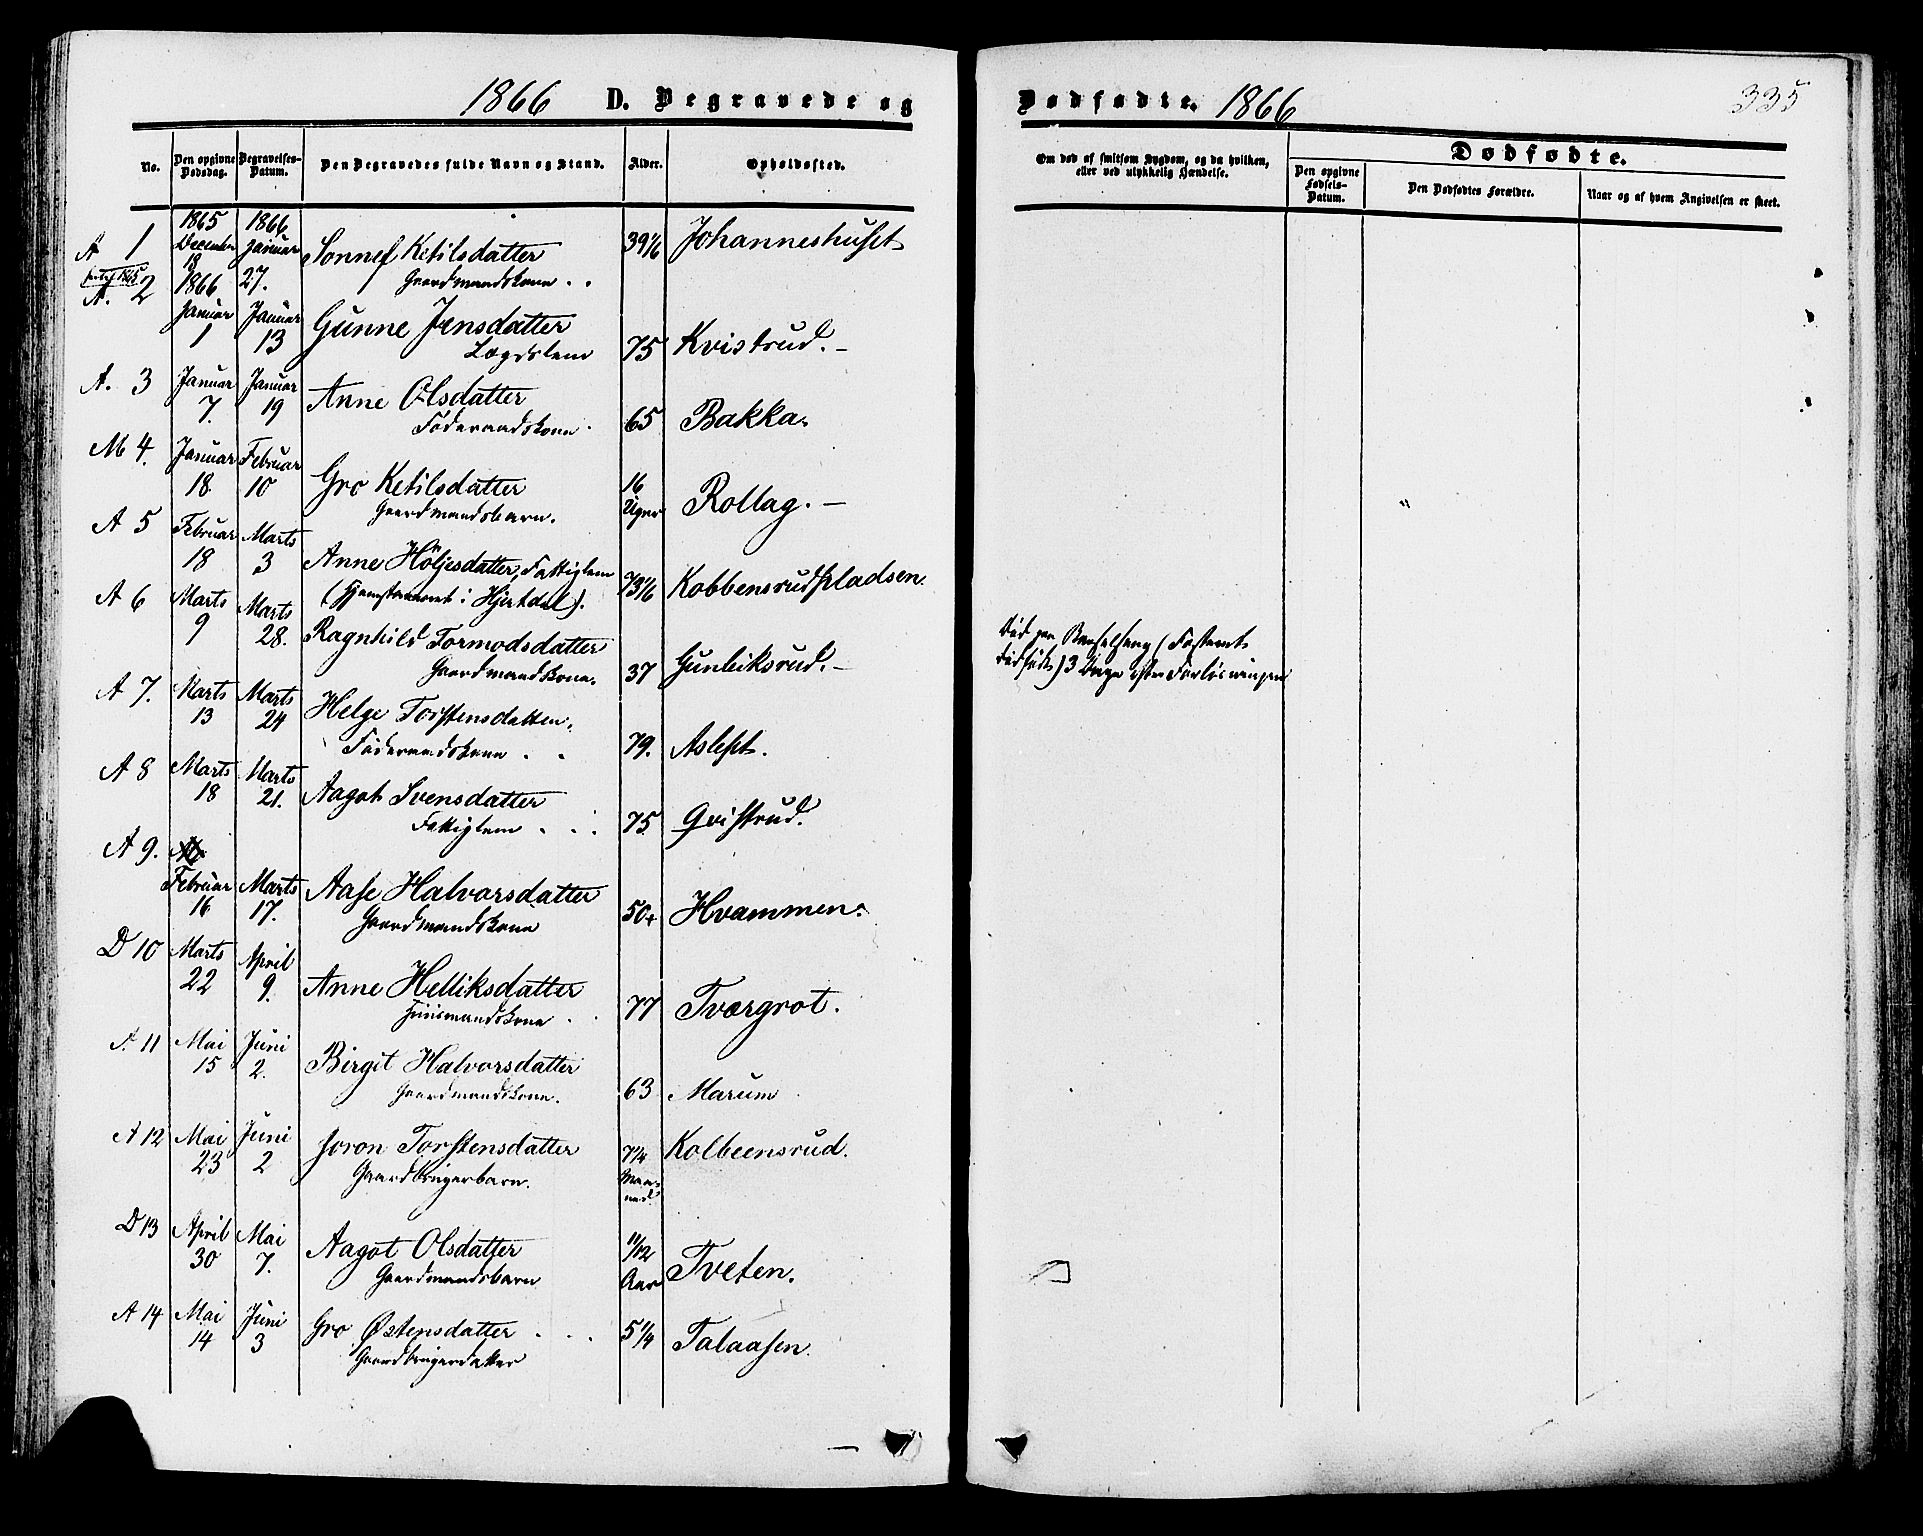 1866 D. Begravede og
No. Den opgivne Dødsdag. Begravelses-Datum. Den Begravedes fulde Navn og Stand. Alder. Opholdssted.
A 1 1865 December 18 1866 Januar 27. Sonnef Ketilsdatter 39 1/6 Johanneshuset
Gaardmandskone
A. 2 1866 Januar 1 Januar 13 Gunne Jensdatter 75 Kvistrud.
Lægdslem
A. 3 Januar 7. Januar 19 Anne Olsdatter 65 Bakka.
Føderaadskone
M 4. Januar 18 Februar 10 Gro Ketilsdatter 16 Uger Rollag.
Gaardmandsbarn.
A 5 Februar 18 Marts 3 Anne Höljesdatter, Fattiglem 73 1/6 Kobbensrudpladsen.
(Hjemstavnsret i Hjertdal).
A 6 Marts 9 Marts 28. Ragnhild Tormodsdatter 37 Gunleiksrud.
Gaardmandskone.
A 7. Marts 13 Marts 24 Helge Torstensdatter. 79. Aslest.
Føderaadskone
A 8 Marts 18 Marts 21. Aagot Svensdatter 75 Qvistrud.
Fattiglem
A 9. Februar 16 Marts 17. Aase Halvorsdatter 50+ Hvammen.
Gaardmandskone
D 10 Marts 22 April 9. Anne Helliksdatter 77 Tværgrot.
Huusmandskone
A. 11 Mai 15 Juni 2. Birgit Halvorsdatter 63 Marum
Gaardmandskone.
A 12 Mai 23 Juni 2 Joron Torstensdatter 7 1/4 Maaned Kolbeensrud.
Gaardbrugerbarn.
D 13 April 30 Mai 7. Aagot Olsdatter 11/12 Aar Tveten.
Gaardmandsbarn
A 14 Mai 14 Juni 3 Gro Østensdatter 5 1/4 Talaasen.
Gaardbrugerdatter
Dødfødte. 1866
335
Om død af smitsom Sygdom, og da hvilken,
eller ved ulykkelig Hændelse.
Dødfødte.
Den opgivne Fødsels-Datum. Den Dødfødtes Forældre. Naar og af hvem Angivelsen er skeet.
Død paa Barselseng (Fosteret
dødfødt) 3 Dage efter Forløsningen